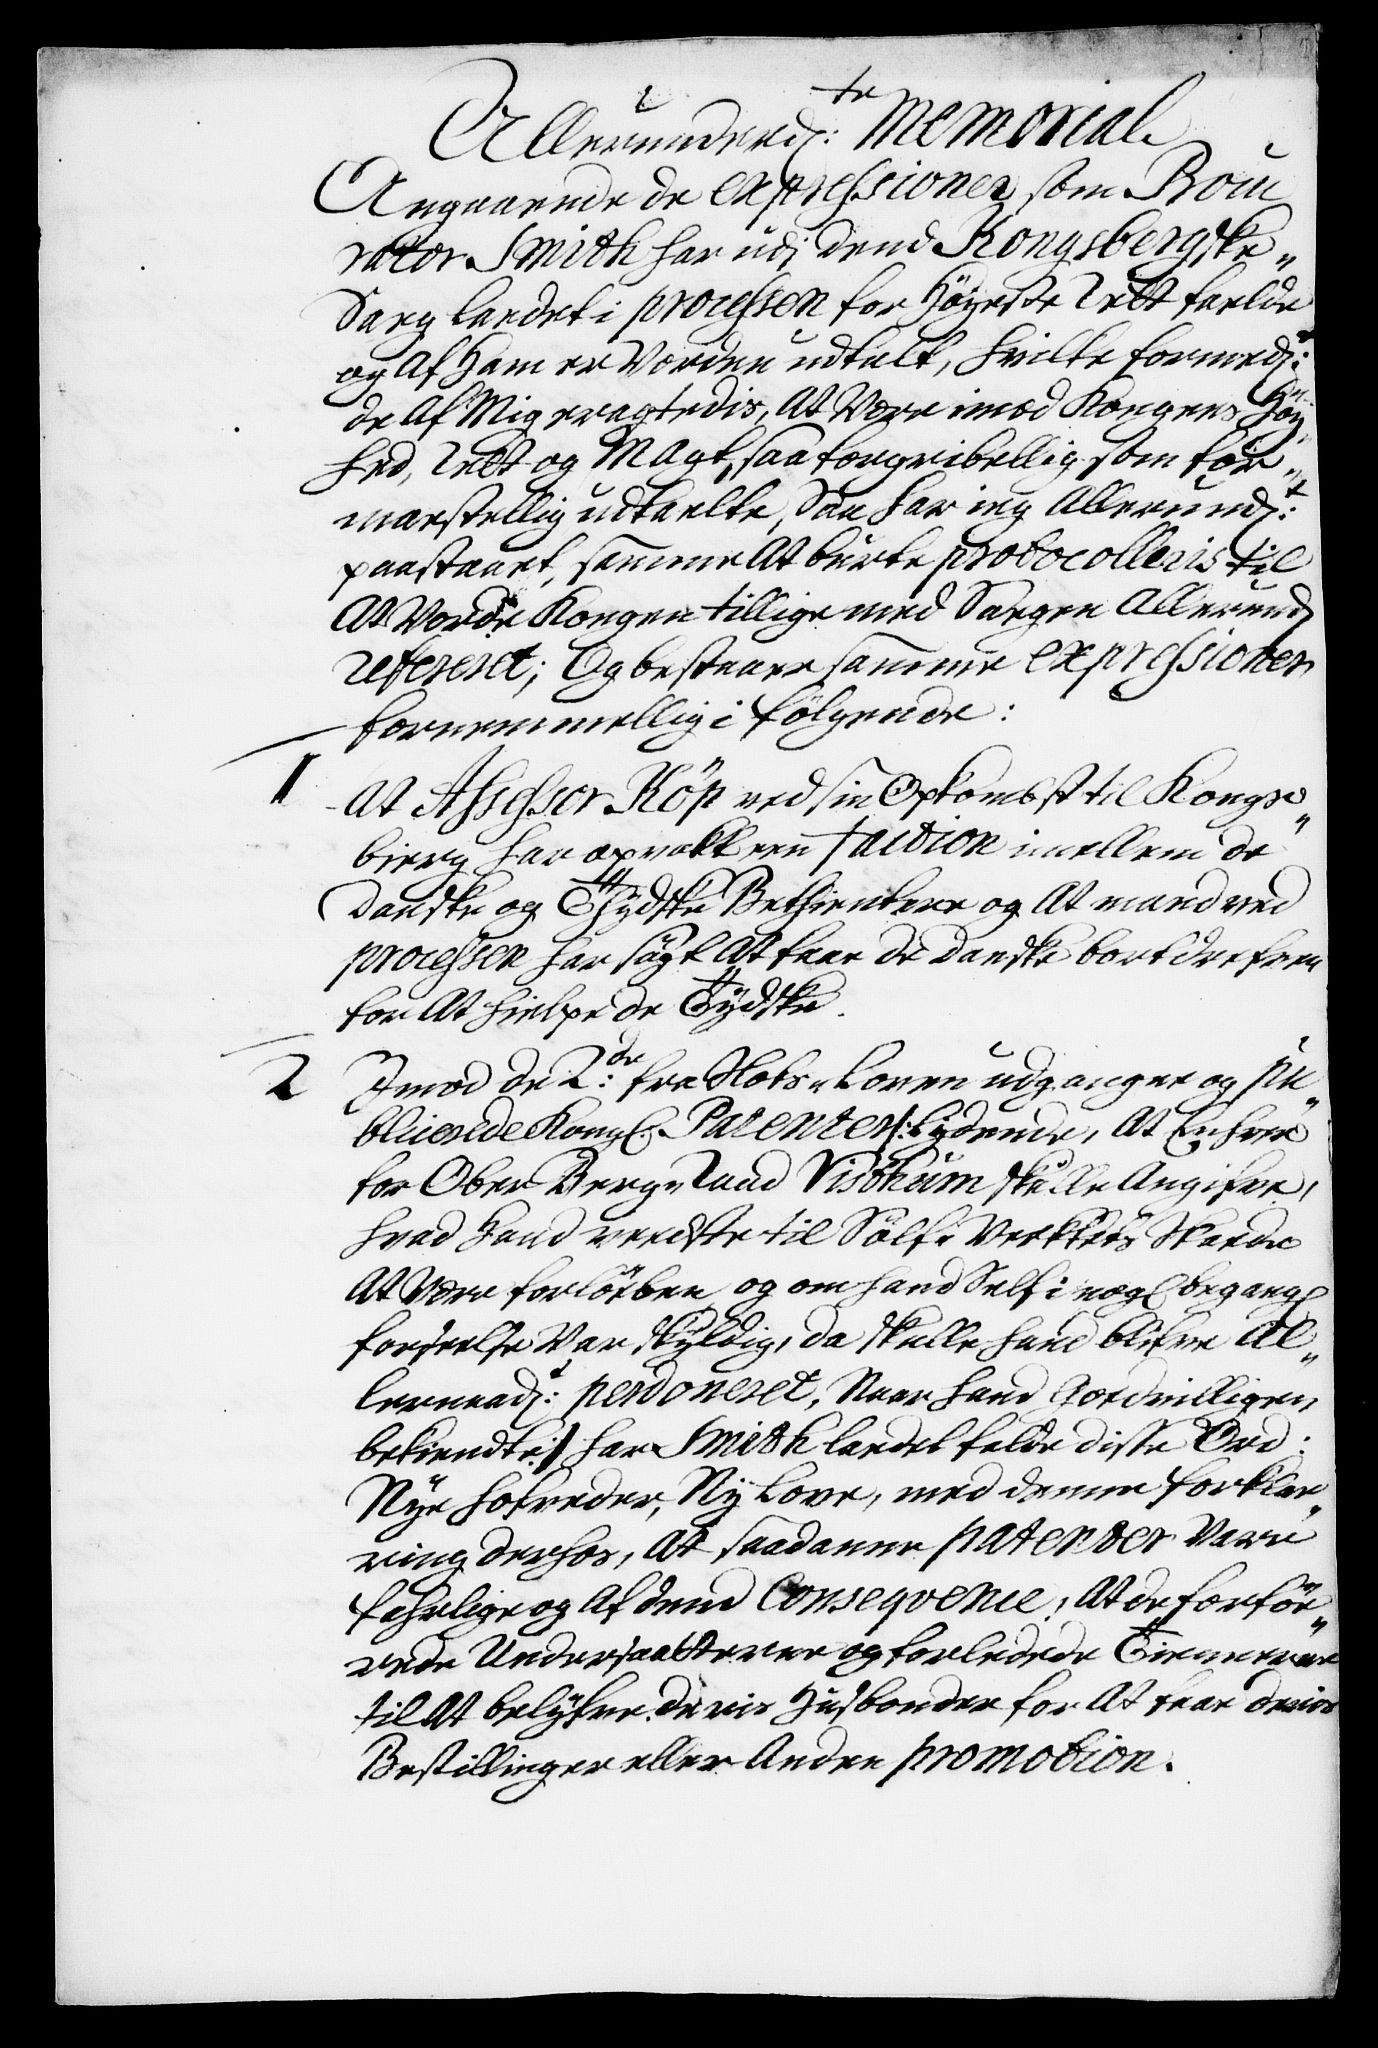 Allerunderd: te Memorial
Angaaende de expressioner som Procu
rator Smith har udi dend Kongsbergske„
Sag ladet i processen for Höyeste Rett falde
og af Ham er vorden udtalt, hvilke formed:t
de af Mig eragtedis, at vere imod Kongens Höy„
hed, Rett og Magt, saa forgribellig som for„
mastellig udtalte, Saa har ieg Allerund:t
paastaaet, samme at burte protocolleris til
at vorde Kongen tillige med Sagen Allerund
refereret; Og bestaar samme expressioner
fornemmellig i fölgende:
1 At Assessor Köp ved sin Opkomst til Kongs„
bierg har opvakt een faction imellem de
Danske og Tydske Bethientere og at mand ved
processen har sögt at faae de Danske bortdrefven
for at hielpe de Tydske.
2 Imod de 2:de fra Slots Loven udgangne og pu„
blicerede Kongl. Patenter /: lydende, at Enhver
for Ober Berg Raad Visthum skulle Angifve,
hvad hand veedste til Sölf Verkets Skade
at vere forlöben, og om hand Self i nogl begangl
forseelse var skyldig, da skulle hand blifve Al„
lernaad:t perdoneret, Naar hand Godvilligen
bekiendte :/ har Smith ladet falde disse Ord:
Nye hofreder, Ny Love, med denne forkla„
ring derhos, at saadanne patenter vare
fahrlige og af dend Consequence, at de forför„
rede Undersaatterne og forledede Tienerne
til at belyfve deris Husbonder for at faae deris
Bestillinger eller Anden promotion.